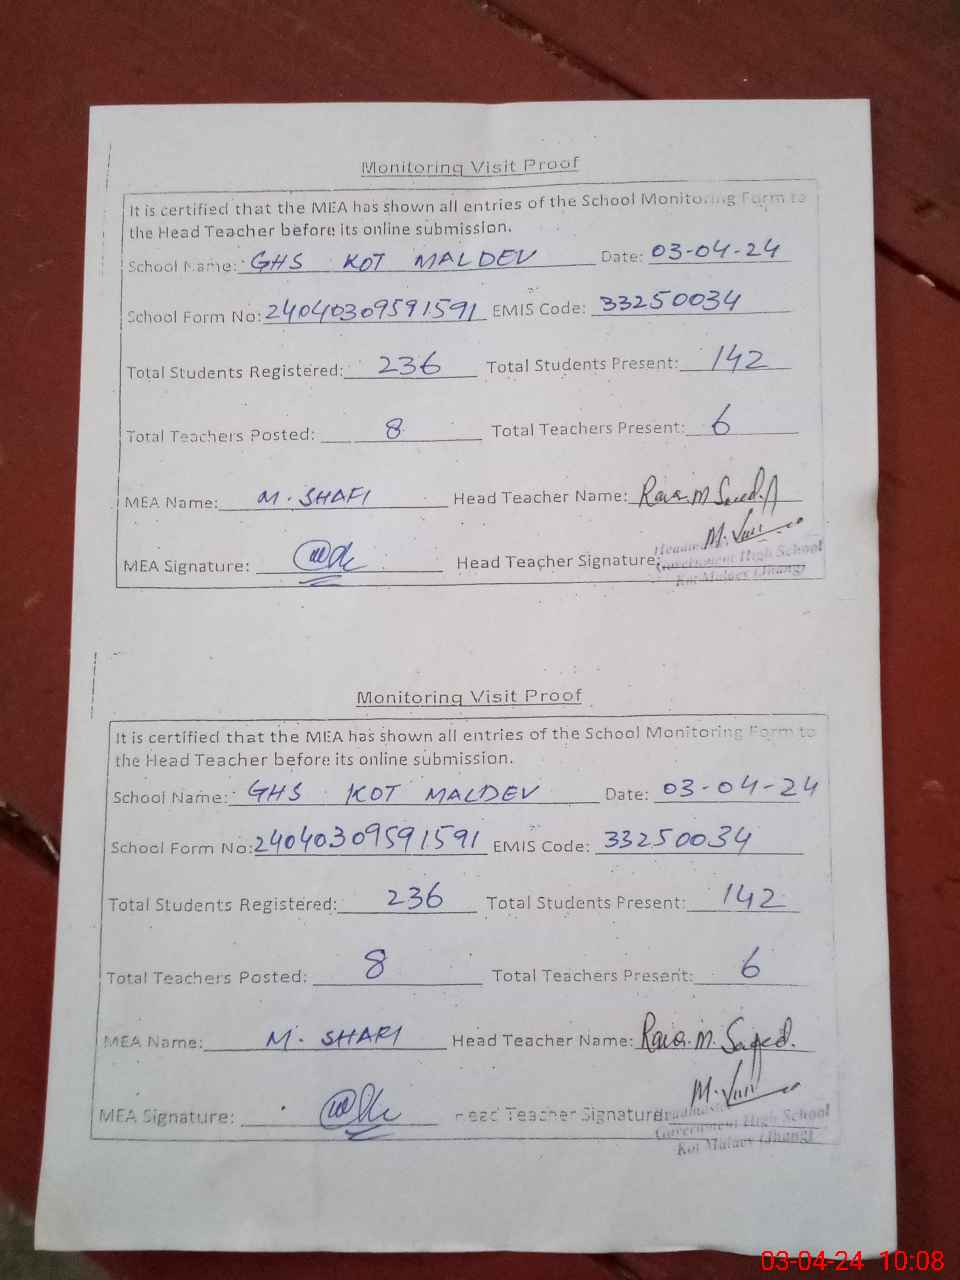 Monitoring Visit Proof
It is certified that the MEA has shown all entries of the School Monitoring Form to
the Head Teacher before its online submission.
School Name: GHS KOT MALDEV Date: 03-04-24
School Form No: 24040309591591 EMIS Code: 33250034
Total Students Registered: 236 Total Students Present: 142
Total Teachers Posted: 8 Total Teachers Present: 6
MEA Name: M. SHAFI Head Teacher Name: M
MEA Signature: Head Teacher Signature:
Government High School
(Jhang)
Monitoring Visit Proof
It is certified that the MEA has shown all entries of the School Monitoring Form to
the Head Teacher before its online submission.
School Name: GHS KOT MALDEV Date: 03-04-24
School Form No: 24040309591591 EMIS Code: 33250034
Total Students Registered: 236 Total Students Present: 142
Total Teachers Posted: 8 Total Teachers Present: 6
MEA Name: M. SHAFI Head Teacher Name: M. Saeed.
MEA Signature: Head Teacher Signature:
Government High School
(Jhang)
03-04-24 10:08